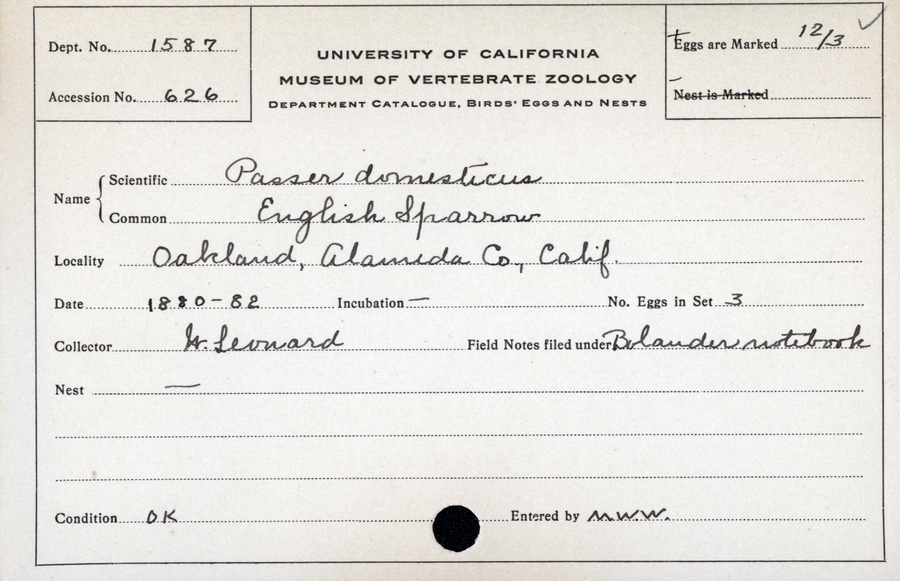 Dept. No. 1587
Accession No. 626
UNIVERSITY OF CALIFORNIA
MUSEUM OF VERTEBRATE ZOOLOGY
DEPARTMENT CATALOGUE, BIRDS' EGGS AND NESTS
Eggs are Marked 12/3
Nest is Marked
Name
Scientific Passer domesticus
Common English Sparrow
Locality Oakland, Alameda Co., Calif.
Date 1880-82 Incubation — No. Eggs in Set 3
Collector W. Leonard Field Notes filed under Bolander notebook
Nest —
Condition OK Entered by M.W.W.